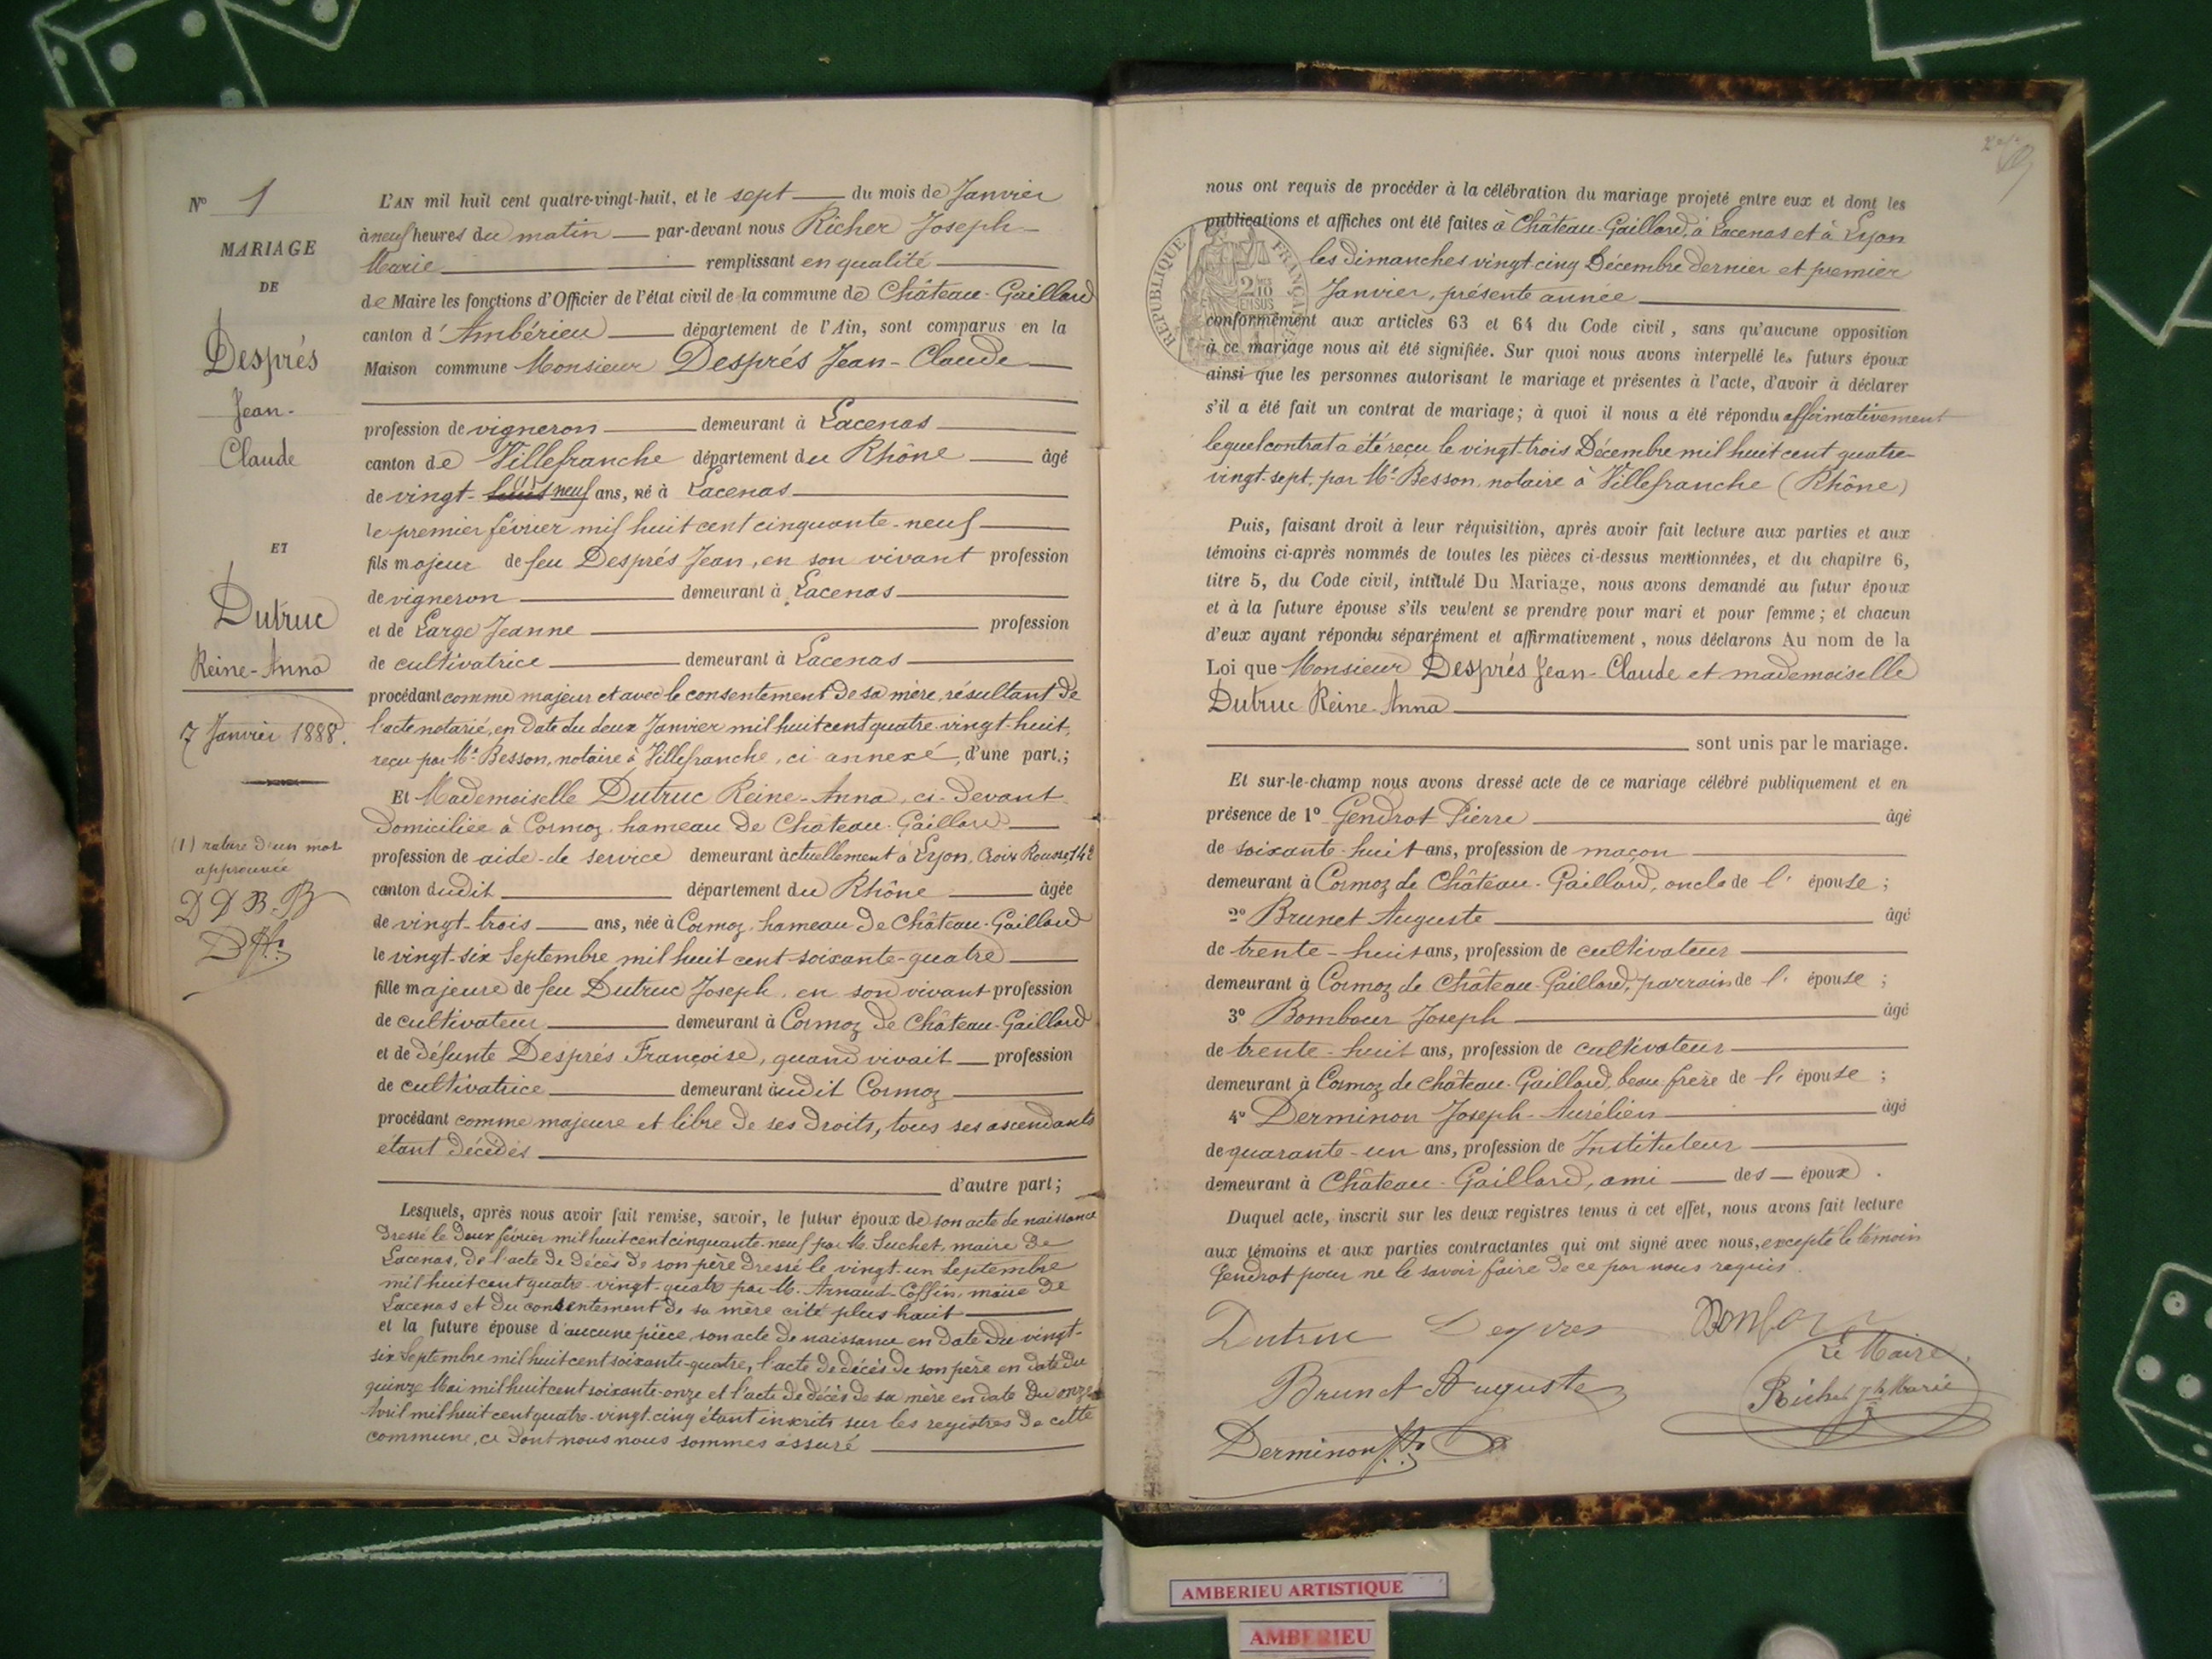 N° 1
MARIAGE
DE
Després
Jean-
Claude
ET
Dutruc
Reine-Anna
7 Janvier 1888.
(1) rature d'un mot
approuvée
D D B. B
L'AN mil huit cent quatre-vingt-huit, et le sept du mois de Janvier
à neuf heures du matin par-devant nous Richer Joseph-
Marie remplissant en qualité
de Maire les fonctions d'Officier de l'état civil de la commune de Château-Gaillard
canton d'Ambérieu département de l'Ain, sont comparus en la
Maison commune Monsieur Després Jean-Claude
profession de vigneron demeurant à Lacenas
canton de Villefranche département du Rhône âgé
de vingt-huit (1) neuf ans, né à Lacenas
le premier février mil huit cent cinquante-neuf
fils majeur de feu Després Jean, en son vivant profession
de vigneron demeurant à Lacenas
et de Large Jeanne profession
de cultivatrice demeurant à Lacenas
procédant comme majeur et avec le consentement de sa mère, résultant de
l'acte notarié, en date du deux Janvier mil huit cent quatre-vingt-huit,
reçu par Me Besson, notaire à Villefranche, ci-annexé, d'une part;
Et Mademoiselle Dutruc Reine-Anna, ci-devant
domiciliée à Cormoz, hameau de Château-Gaillard
profession de aide-de service demeurant actuellement à Lyon, Croix Rousse, 142
canton dudit département du Rhône âgée
de vingt-trois ans, née à Cormoz, hameau de Château-Gaillard
le vingt-six Septembre mil huit cent soixante-quatre
fille majeure de feu Dutruc Joseph, en son vivant profession
de cultivateur demeurant à Cormoz de Château-Gaillard
et de défunte Després Françoise, quand vivait profession
de cultivatrice demeurant audit Cormoz
procédant comme majeure et libre de ses droits, tous ses ascendants
étant décédés
d'autre part;
Lesquels, après nous avoir fait remise, savoir, le futur époux de son acte de naissance
dressé le deux février mil huit cent cinquante-neuf par M. Suchet, maire de
Lacenas, de l'acte de décès de son père dressé le vingt-un Septembre
mil huit cent quatre-vingt-quatre par M. Arnaud-Coffin, maire de
Lacenas et du consentement de sa mère cité plus haut
et la future épouse d'aucune pièce, son acte de naissance en date du vingt-
six Septembre mil huit cent soixante-quatre, l'acte de décès de son père en date du
quinze Mai mil huit cent soixante-onze et l'acte de décès de sa mère en date du onze
Avril mil huit cent quatre-vingt-cinq étant inscrits sur les registres de cette
commune, ce dont nous nous sommes assuré
nous ont requis de procéder à la célébration du mariage projeté entre eux et dont les
publications et affiches ont été faites à Château-Gaillard, à Lacenas et à Lyon
les dimanches vingt-cinq Décembre dernier et premier
Janvier, présente année
RÉPUBLIQUE FRANÇAISE
2/10 EN SUS
conformément aux articles 63 et 64 du Code civil, sans qu'aucune opposition
à ce mariage nous ait été signifiée. Sur quoi nous avons interpellé les futurs époux
ainsi que les personnes autorisant le mariage et présentes à l'acte, d'avoir à déclarer
s'il a été fait un contrat de mariage; à quoi il nous a été répondu affirmativement
lequel contrat a été reçu le vingt-trois Décembre mil huit cent quatre-
vingt-sept, par Me Besson, notaire à Villefranche (Rhône)
Puis, faisant droit à leur réquisition, après avoir fait lecture aux parties et aux
témoins ci-après nommés de toutes les pièces ci-dessus mentionnées, et du chapitre 6,
titre 5, du Code civil, intitulé Du Mariage, nous avons demandé au futur époux
et à la future épouse s'ils veulent se prendre pour mari et pour femme; et chacun
d'eux ayant répondu séparément et affirmativement, nous déclarons Au nom de la
Loi que Monsieur Després Jean-Claude et mademoiselle
Dutruc Reine-Anna
sont unis par le mariage.
Et sur-le-champ nous avons dressé acte de ce mariage célébré publiquement et en
présence de 1° Gendrot Pierre âgé
de soixante-huit ans, profession de maçon
demeurant à Cormoz de Château-Gaillard, oncle de l'épouse;
2° Brunet Auguste âgé
de trente-huit ans, profession de cultivateur
demeurant à Cormoz de Château-Gaillard, parrain de l'épouse;
3° Bombour Joseph âgé
de trente-huit ans, profession de cultivateur
demeurant à Cormoz de Château-Gaillard, beau-frère de l'épouse;
4° Derminon Joseph-Aurélien âgé
de quarante-un ans, profession de Instituteur
demeurant à Château-Gaillard, ami des époux.
Duquel acte, inscrit sur les deux registres tenus à cet effet, nous avons fait lecture
aux témoins et aux parties contractantes qui ont signé avec nous, excepté le témoin
Gendrot pour ne le savoir faire de ce par nous requis.
Dutruc Despres
Le Maire,
Brunet Auguste Richer Jh Marie
Derminon
AMBERIEU ARTISTIQUE
AMBERIEU